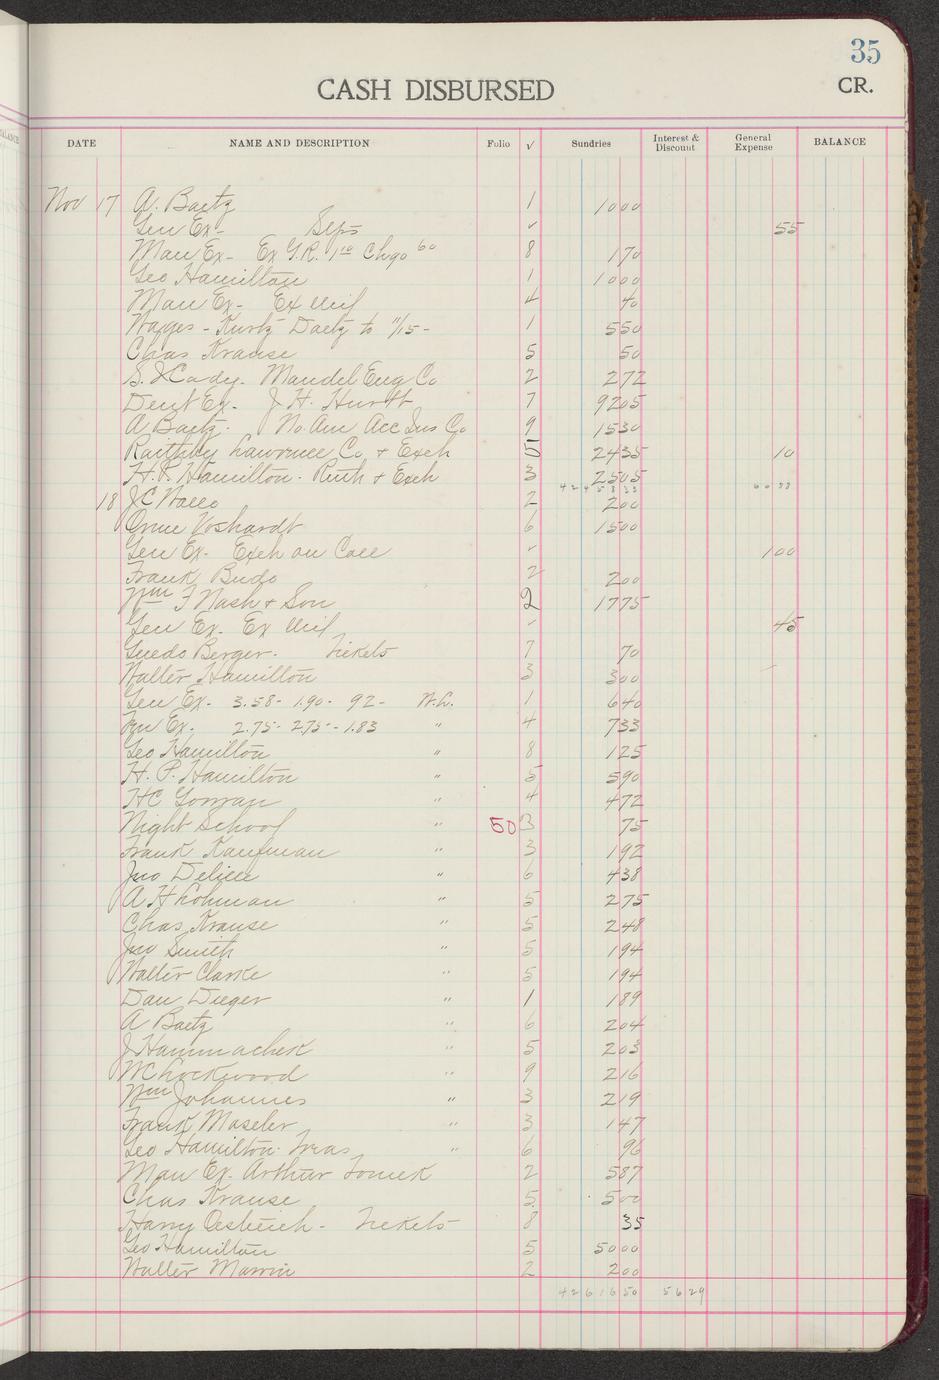 35
CASH DISBURSED
CR.
DATE NAME AND DESCRIPTION Folio √ Sundries Interest & Discount General Expense BALANCE
Nov 17 A. Baetz 1 1000
Gen Ex- √ 55
Man Ex- Ex G.R. 1.10 Chgo 60 8 170
Geo Hamilton 1 1000
Man Ex- Ex 4 40
Wages - Kurtz Daetz to 11/15 - 1 550
Chas Krause 5 50
Cady. Mandel Eng Co 2 272
Dent Ex. J H. 7 9205
A Baetz. No. Am Acc Ins Co 9 1530
Raithby Lawrence Co. + Exch 5 2435 10
H. P. Hamilton. Ruth + Exch 3 2505
18 J C 2 200
Orme Voshardt 6 1500
Gen Ex- Exch on √ 100
Frank Budo 2 200
Wm F Nash + Son 2 1775
Gen Ex. Ex √ 45
Guedo Berger. Tickets 7 70
Walter Hamilton 3 300
Gen Ex- 3.58- 1.90- 92- 1 640
Ex. 2.75- 2.75- 1.83 " 4 733
Geo Hamilton " 8 125
H. P. Hamilton " 5 590
HC Gorman " 4 472
Night School " 50 3 75
Frank Kaufman " 3 192
Jno " 6 438
A H Lohman " 5 275
Chas Krause " 5 248
Jno Smith " 5 194
Walter Clarke " 5 194
Dan Dieger " 1 189
A Baetz " 6 204
J Hammachek " 5 203
W C Lockwood " 9 216
Wm Johannes " 3 219
Frank Maseler " 3 147
Geo Hamilton Treas " 6 96
Man Ex. Arthur Tomek 2 587
Chas Krause 5 500
Harry Oestreich - Tickets 8 35
Geo Hamilton 5 5000
Walter 2 200
4261650 5629